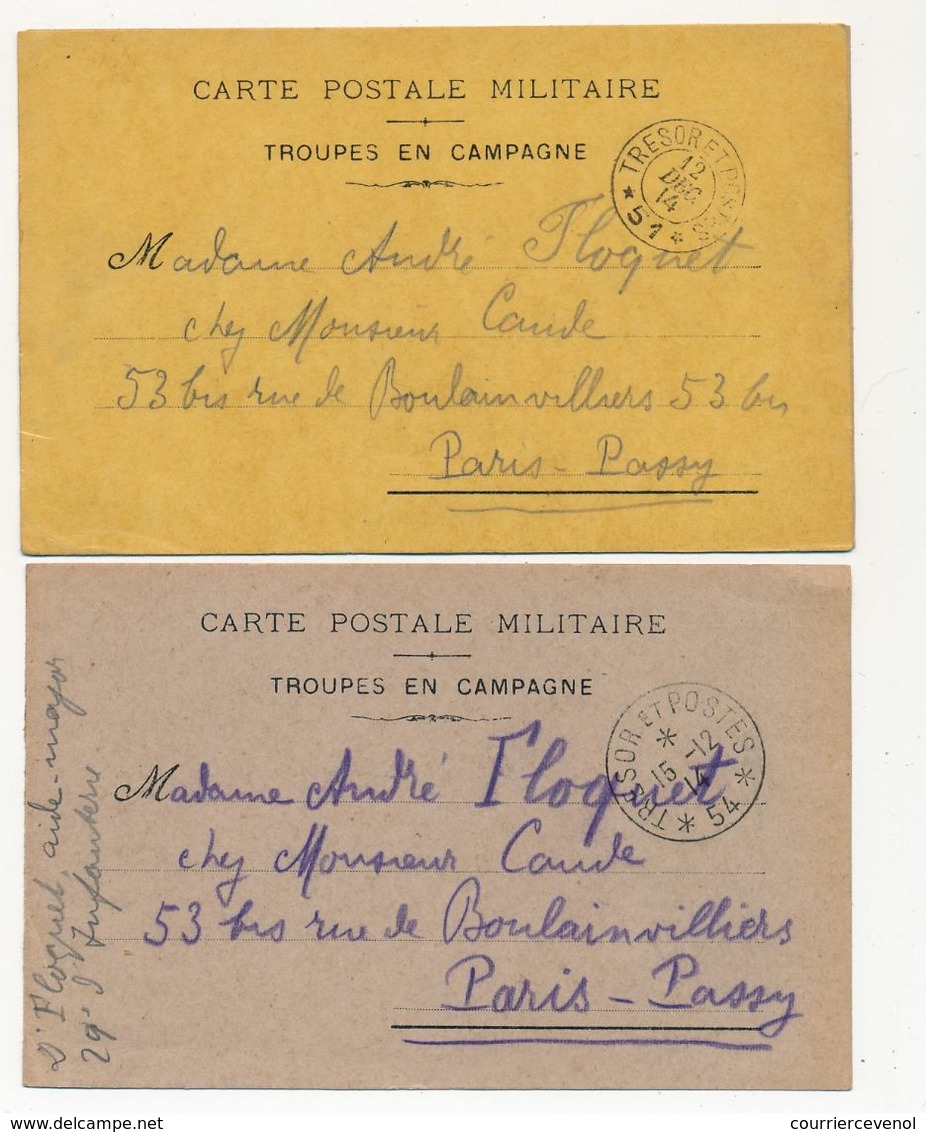 CARTE POSTALE MILITAIRE
TROUPES EN CAMPAGNE
TRESOR ET POSTES
12
DEC
14
* 51 *
Madame André Floquet
chez Monsieur Caude
53 bis rue de Boulainvilliers 53 bis
Paris-Passy
CARTE POSTALE MILITAIRE
TROUPES EN CAMPAGNE
TRESOR ET POSTES
* 15-12
14
* 54 *
Madame André Floquet
chez Monsieur Caude
53 bis rue de Boulainvilliers
Paris-Passy
Dr Floquet, aide-major
29e d'Infanterie
delcampe.net
courriercevenol